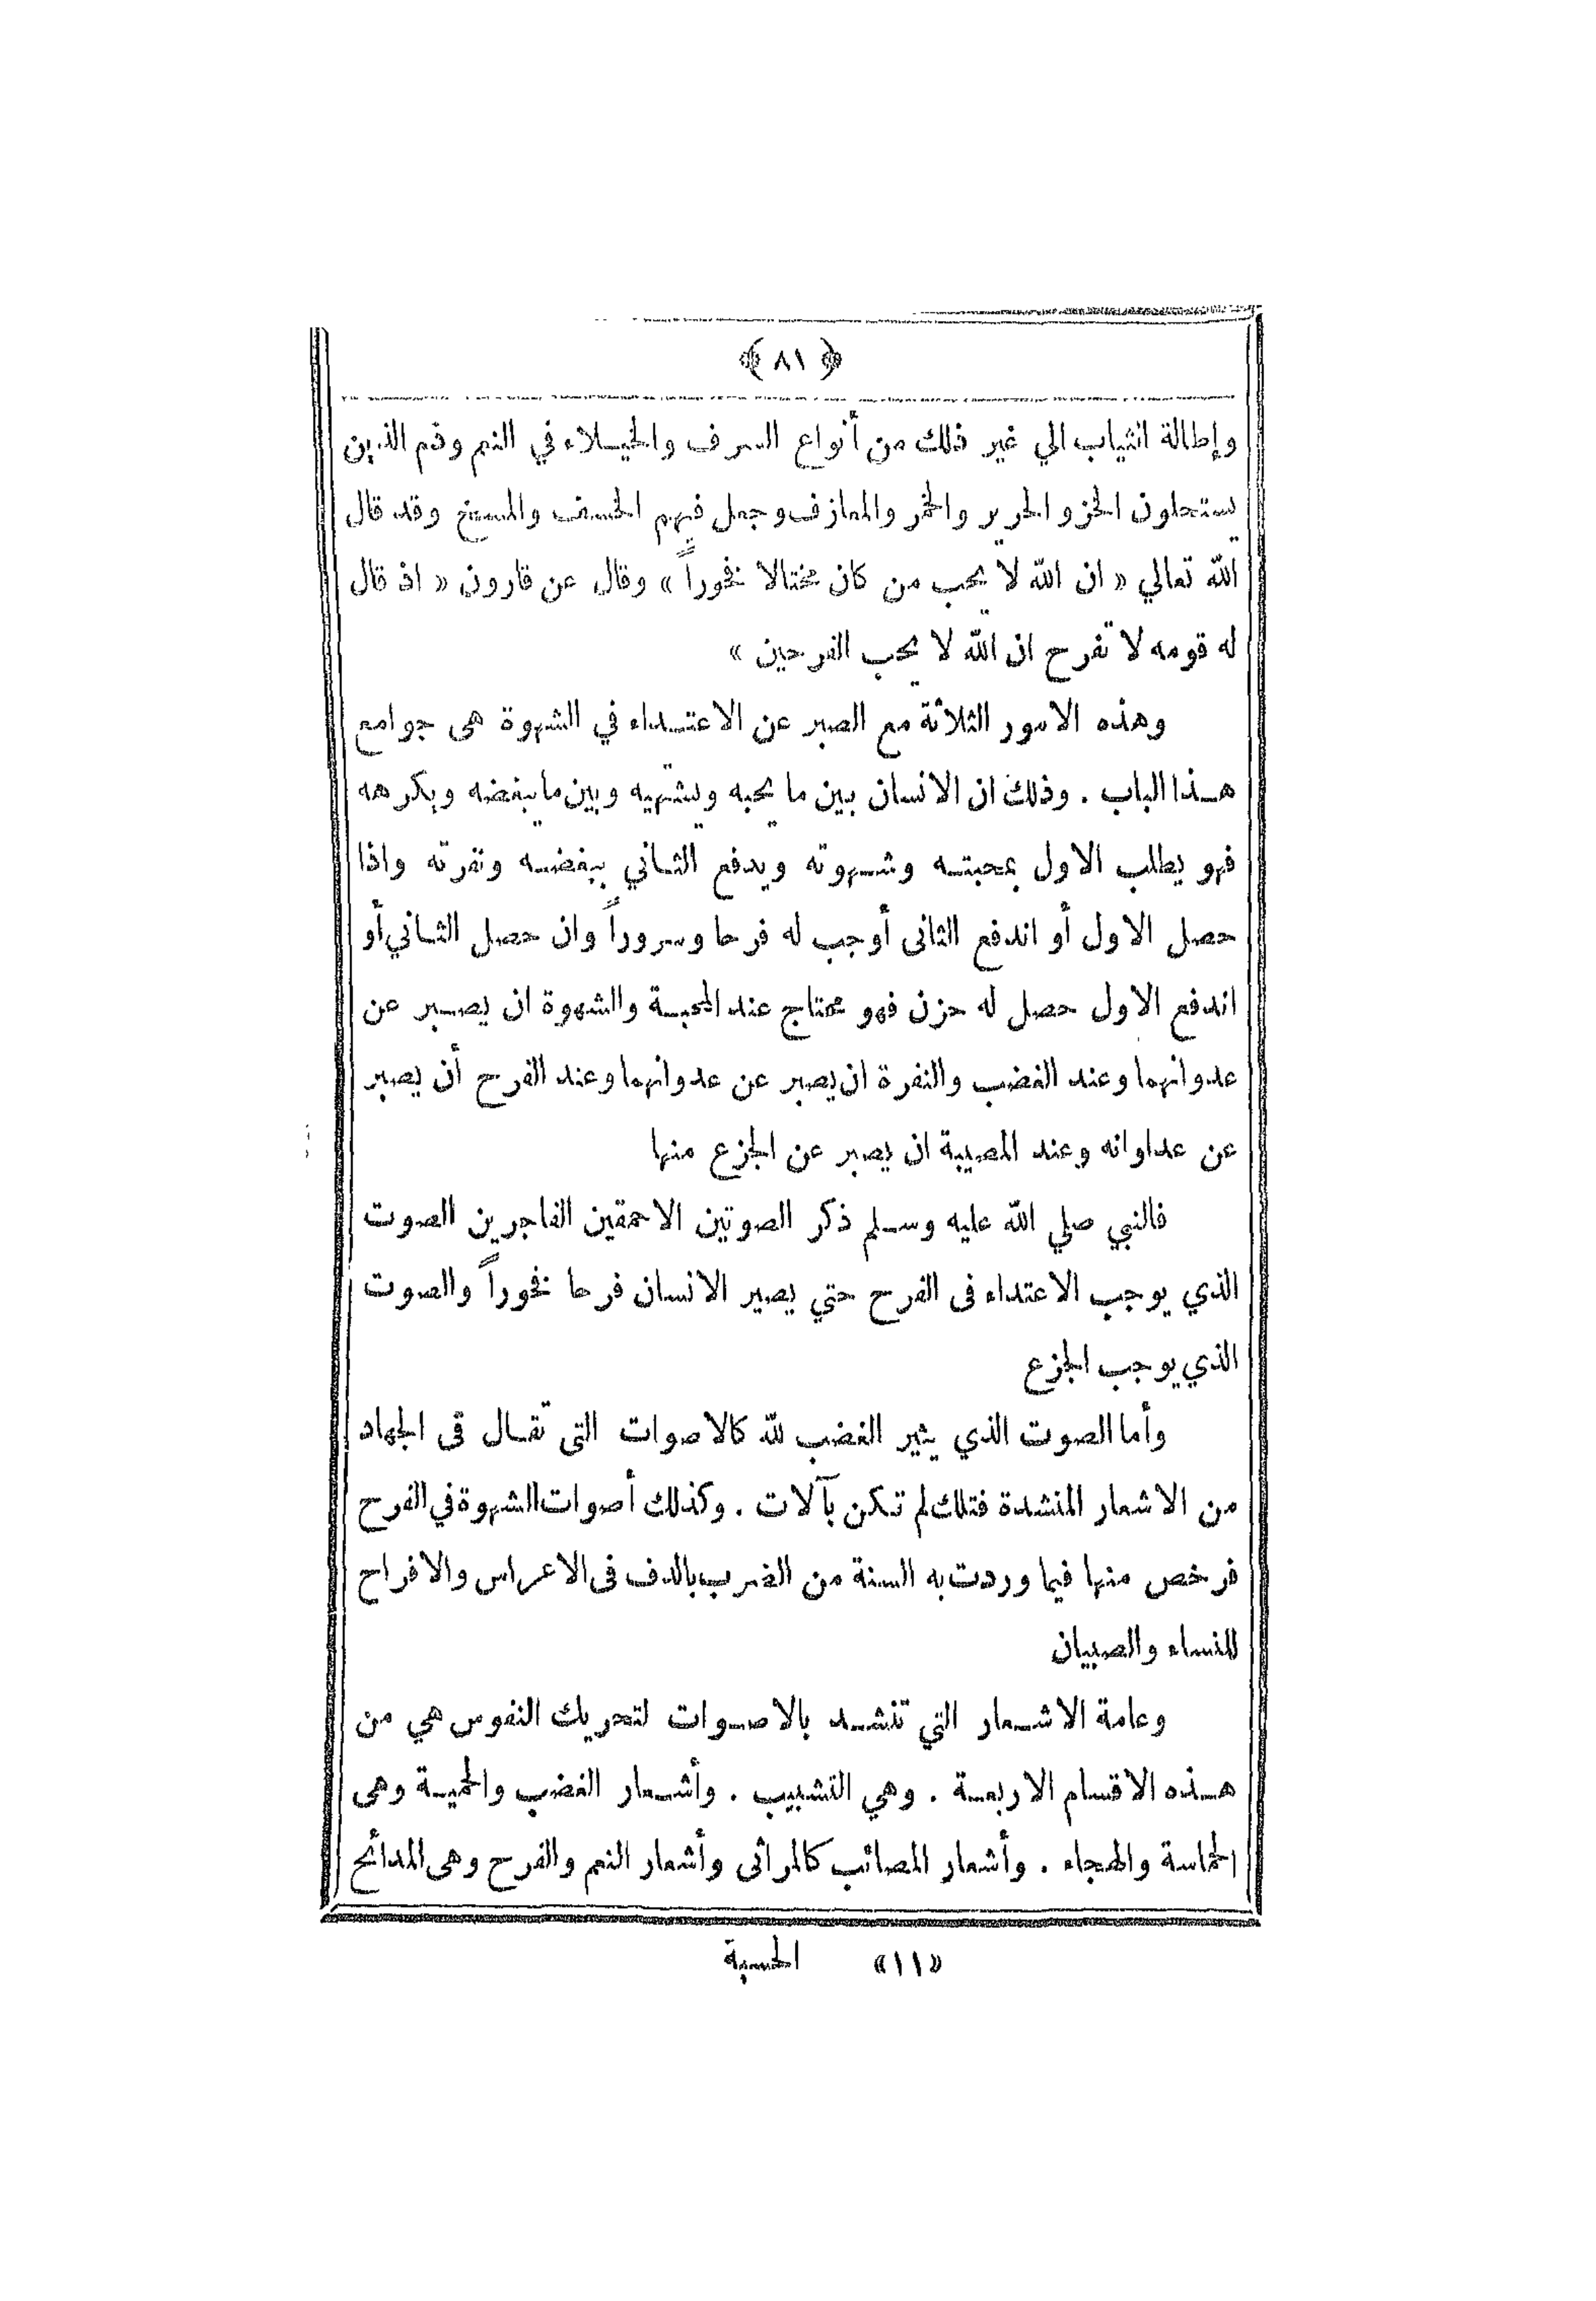 ﴿ ٨١ ﴾
وإطالة الثياب الي غير ذلك من أنواع السرف والخيلاء في النعم وذم الذين
يستحلون الخز والحرير والخمر والمعازف وجعل فيهم الخسف والمسخ وقد قال
الله تعالي « ان الله لا يحب من كان مختالا فخوراً » وقال عن قارون « اذ قال
له قومه لا تفرح ان الله لا يحب الفرحين »
وهذه الامور الثلاثة مع الصبر عن الاعتداء في الشهوة هى جوامع
هذا الباب . وذلك ان الانسان بين ما يحبه ويشتهيه وبين ما يبغضه ويكرهه
فهو يطلب الاول بمحبته وشهوته ويدفع الثاني ببغضه ونفرته واذا
حصل الاول أو اندفع الثانى أوجب له فرحا وسروراً وان حصل الثاني أو
اندفع الاول حصل له حزن فهو محتاج عند المحبة والشهوة ان يصبر عن
عدوانهما وعند الغضب والنفرة ان يصبر عن عدوانهما وعند الفرح أن يصبر
عن عداوانه وعند المصيبة ان يصبر عن الجزع منها
فالنبي صلي الله عليه وسلم ذكر الصوتين الاحمقين الفاجرين الصوت
الذي يوجب الاعتداء فى الفرح حتي يصير الانسان فرحا فخوراً والصوت
الذي يوجب الجزع
وأما الصوت الذي يثير الغضب لله كالاصوات التى تقال قى الجهاد
من الاشعار المنشدة فتلك لم تكن بآلات . وكذلك أصوات الشهوة في الفرح
فرخص منها فيما وردت به السنة من الضرب بالدف فى الاعراس والافراح
للنساء والصبيان
وعامة الاشعار التي تنشد بالاصوات لتحريك النفوس هي من
هذه الاقسام الاربعة . وهي التشبيب . وأشعار الغضب والحمية وهى
الحماسة والهجاء . وأشعار المصائب كالمراثى وأشعار النعم والفرح وهى المدائح
«١١» الحسبة